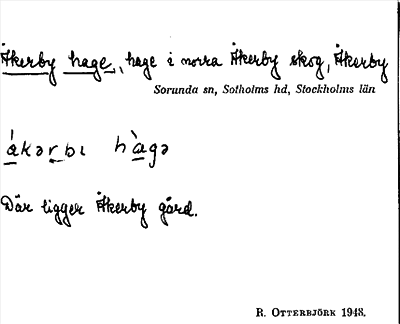 Åkerby hage, hage i norra Åkerby skog, Åkerby
Sorunda sn, Sotholms hd, Stockholms län
ákərbı hàgə
Där ligger Åkerby gård.
R. OTTERBJÖRK 1948.